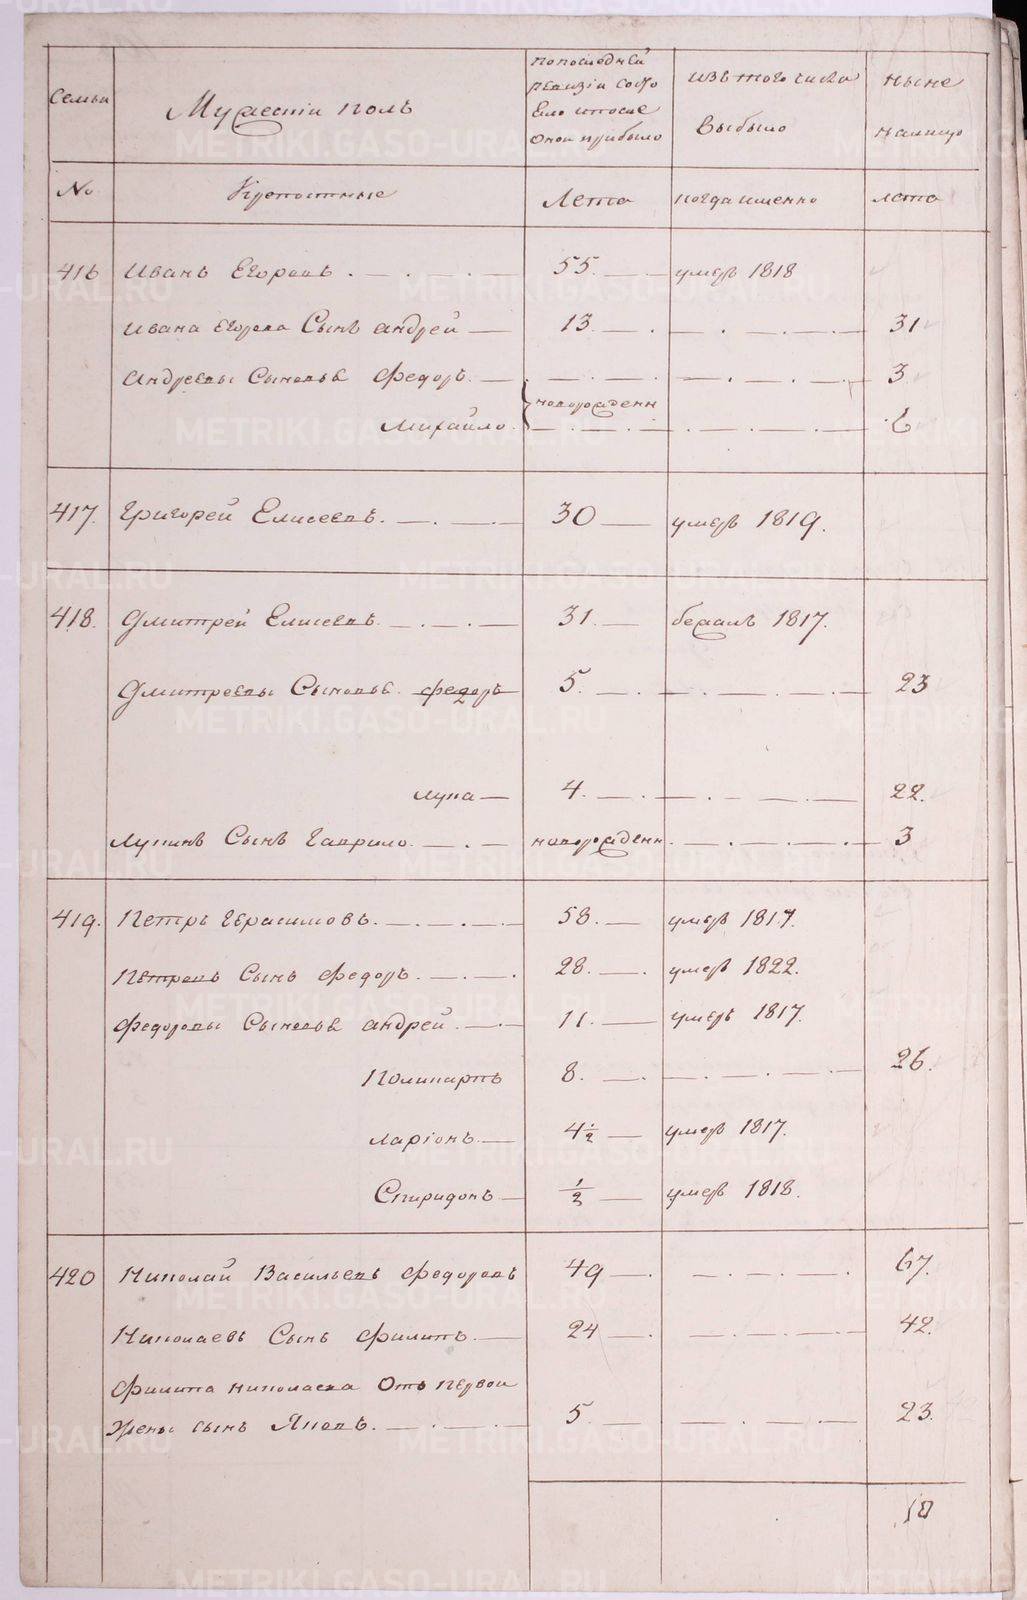 Семьи
Мужескiи полъ
по последней
ревизiи состо
яло и после
оной прибыло
изъ того числа
выбыло
ныне
налицо
No
Крепостные
Лета
когда именно
лета
416 Иванъ Егоровъ 55. умеръ 1818
Ивана Егорова Сынъ андрей 13. 31
андреевы Сыновья Федоръ 3
новорожденн
Михайло 6
417. Григорей Елисеевъ 30 умеръ 1819.
418. Дмитрей Елисеевъ 31. бежалъ 1817.
Дмитреевы Сыновья Федоръ 5. 23
лупа 4. 22.
лупинъ Сынъ Гаврило новорожденн 3
419. Петръ Герасимовъ 58. умеръ 1817.
Петровъ Сынъ Федоръ 28. умеръ 1822.
Федоровы Сыновья андрей 11. умеръ 1817.
Полинарпъ 8. 26.
ларiонъ 4½ умеръ 1817.
Спиридонъ ½ умеръ 1818.
420 Николай Васильевъ Федоровъ 49 67.
Николаевъ Сынъ Филипъ 24 42.
Филипа николаева Отъ первой
Жены сынъ Яковъ 5. 23.
10
METRIKI.GASO-URAL.RU